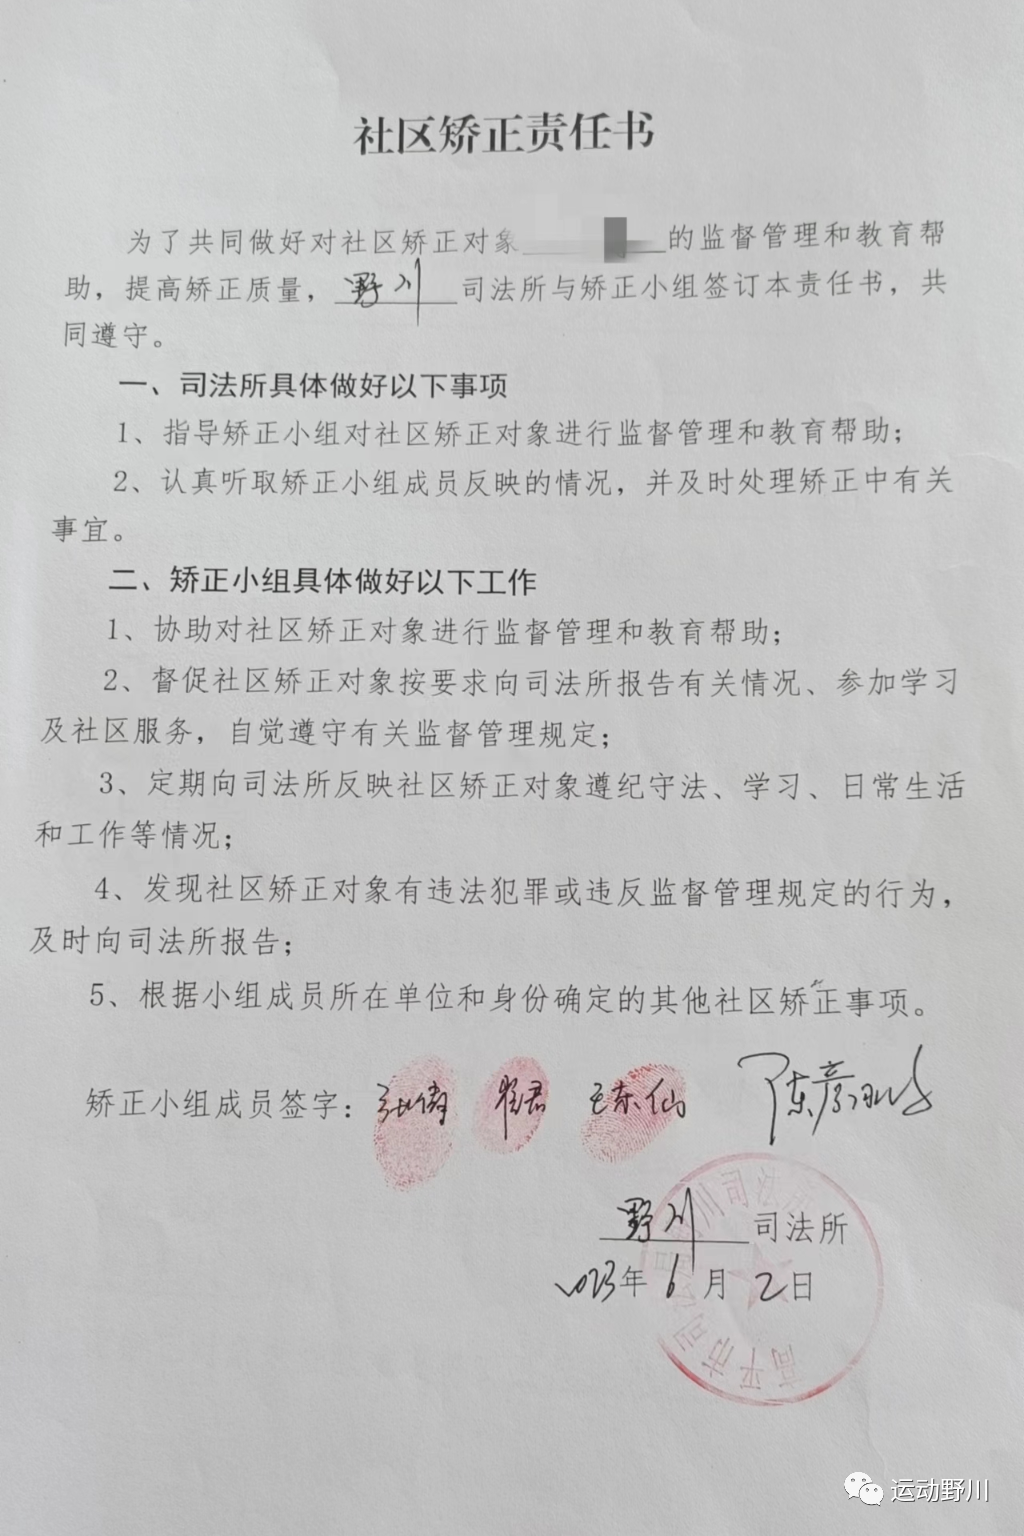 社区矫正责任书
为了共同做好对社区矫正对象 的监督管理和教育帮
助，提高矫正质量，野川司法所与矫正小组签订本责任书，共
同遵守。
一、司法所具体做好以下事项
1、指导矫正小组对社区矫正对象进行监督管理和教育帮助；
2、认真听取矫正小组成员反映的情况，并及时处理矫正中有关
事宜。
二、矫正小组具体做好以下工作
1、协助对社区矫正对象进行监督管理和教育帮助；
2、督促社区矫正对象按要求向司法所报告有关情况、参加学习
及社区服务，自觉遵守有关监督管理规定；
3、定期向司法所反映社区矫正对象遵纪守法、学习、日常生活
和工作等情况；
4、发现社区矫正对象有违法犯罪或违反监督管理规定的行为，
及时向司法所报告；
5、根据小组成员所在单位和身份确定的其他社区矫正事项。
矫正小组成员签字：
野川司法所
2023年6月2日
高平市司法局野川司法所
运动野川